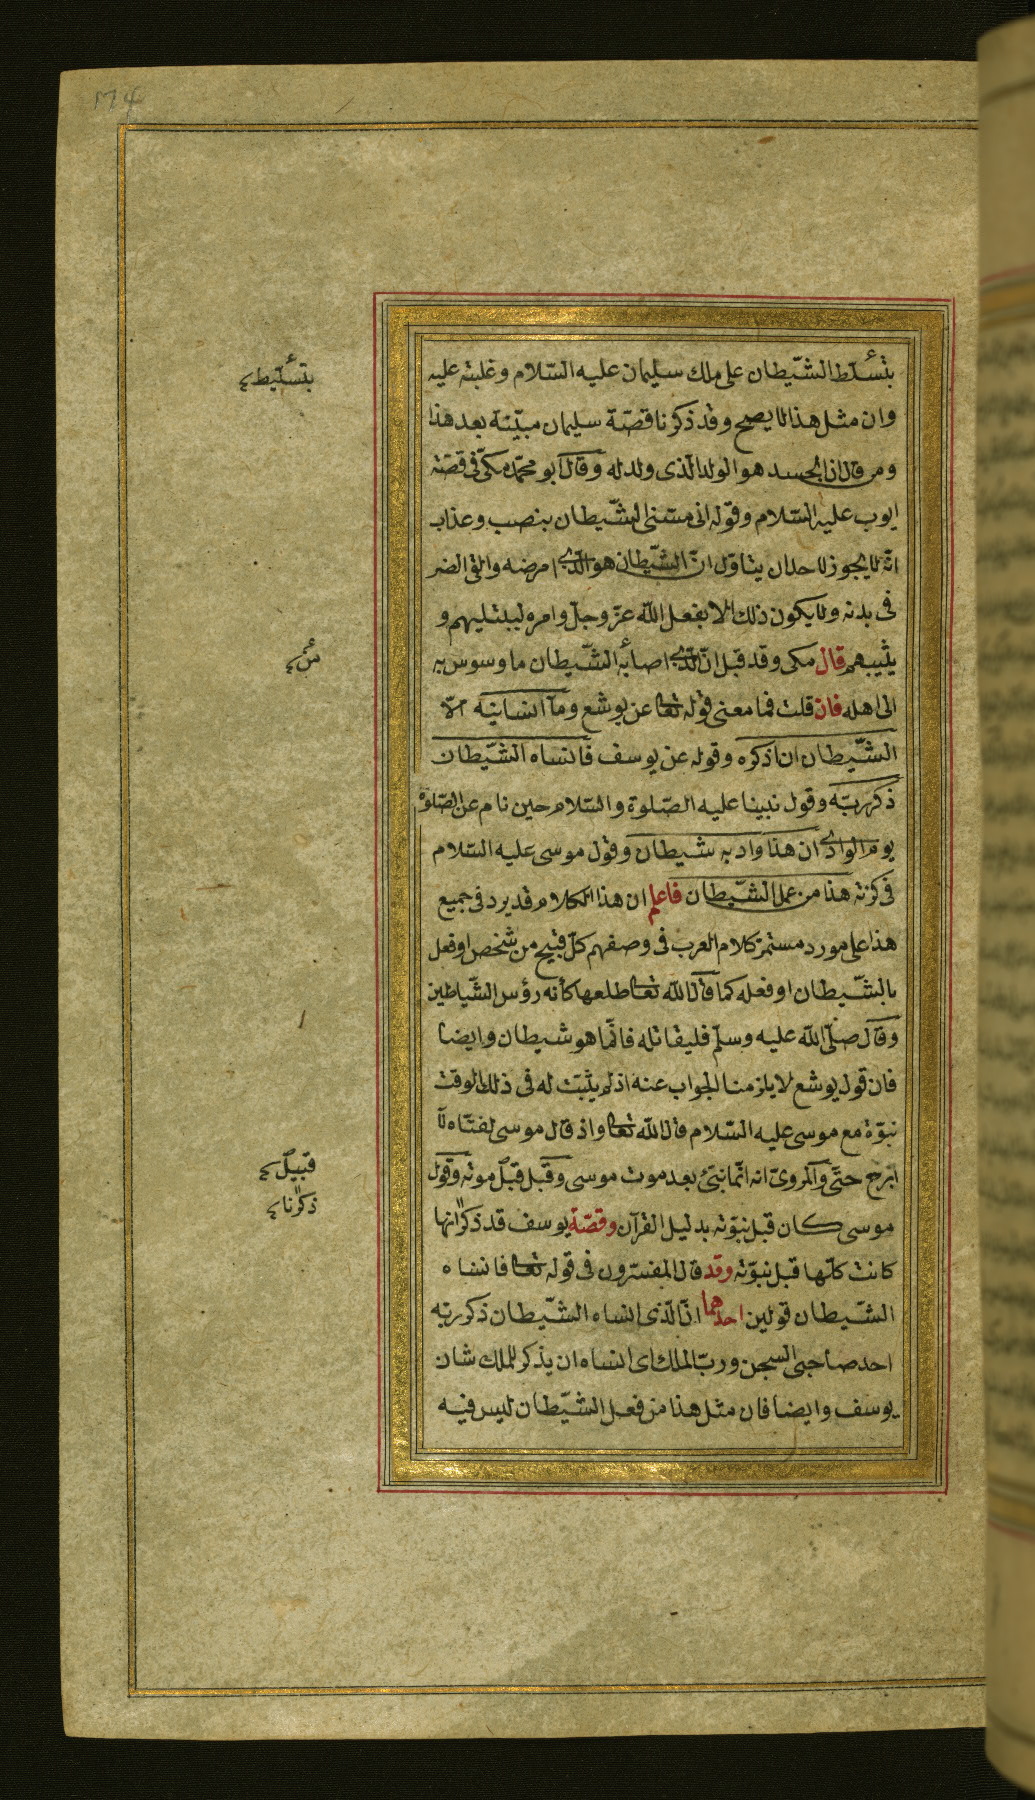 ١٧٤
بتسلّط الشّيطان على ملك سليمان عليه السّلام وغلبته عليه
بتسليط
وان مثل هذا لا يصح وقد ذكرنا قصّة سليمان مبيّنة بعد هذا
ومن قال ان الجسد هو الولد الذى ولد له وقال ابو محمّد مكّى فى قصّة
ايوب عليه السّلام وقوله انى مسّنى الشّيطان بنصب وعذاب
انّه لا يجوز لاحد ان يتاوّل انّ الشّيطان هو الّذى امرضه والقى الضر
فى بدنه ولا يكون ذلك الا بفعل اللّه عزّ وجلّ وامره ليبتليهم و
يثيبهم قال مكى وقد قيل انّ الّذى اصابه الشّيطان ما وسوس به
من
الى اهله فان قلت فما معنى قوله تعالى عن يوشع وما انسانيه الّا
الشّيطان ان اذكره وقوله عن يوسف فانساه الشّيطان
ذكر ربّه وقول نبينا عليه الصّلوة والسّلام حين نام عن الصّلوة
يوم الوادى ان هذا واد به شيطان وقول موسى عليه السّلام
فى وكزته هذا من عمل الشّيطان فاعلم ان هذا الكلام قد يرد فى جميع
هذا على مورد مستمرّ كلام العرب فى وصفهم كلّ قبيح من شخص او فعل
بالشّيطان او فعله كما قال اللّه تعالى طلعها كأنه رؤس الشّياطين
وقال صلّى اللّه عليه وسلّم فليقاتله فانّما هو شيطان وايضا
فان قول يوشع لا يلزمنا الجواب عنه اذ لم يثبت له فى ذلك الوقت
نبوّة مع موسى عليه السّلام قال اللّه تعالى واذ قال موسى لفتاه لا
ابرح حتّى والمروىّ انه انّما نبّئ بعد موت موسى وقيل قبل موته وقول
قبيل
موسى كان قبل نبوّته بدليل القرآن وقصّة يوسف قد ذكر انها
ذكرنا
كانت كلّها قبل نبوّته وقد قال المفسّرون فى قوله تعالى فانساه
الشّيطان قولين احدهما انّ الّذى انساه الشّيطان ذكر ربّه
احد صاحبى السجن وربّه الملك اى انساه ان يذكر للملك شان
يوسف وايضا فان مثل هذا من فعل الشّيطان ليس فيه